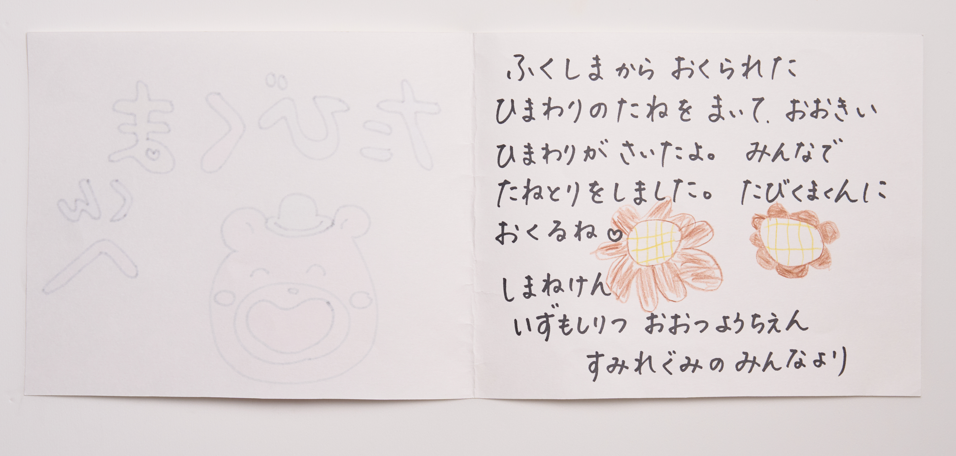 たびくま
くん
へ
ふくしまから おくられた
ひまわりのたねを まいて、おおきい
ひまわりが さいたよ。 みんなで
たねとりをしました。 たびくまくんに
おくるね♡
しまねけん
いずもしりつ おおつようちえん
すみれぐみの みんなより